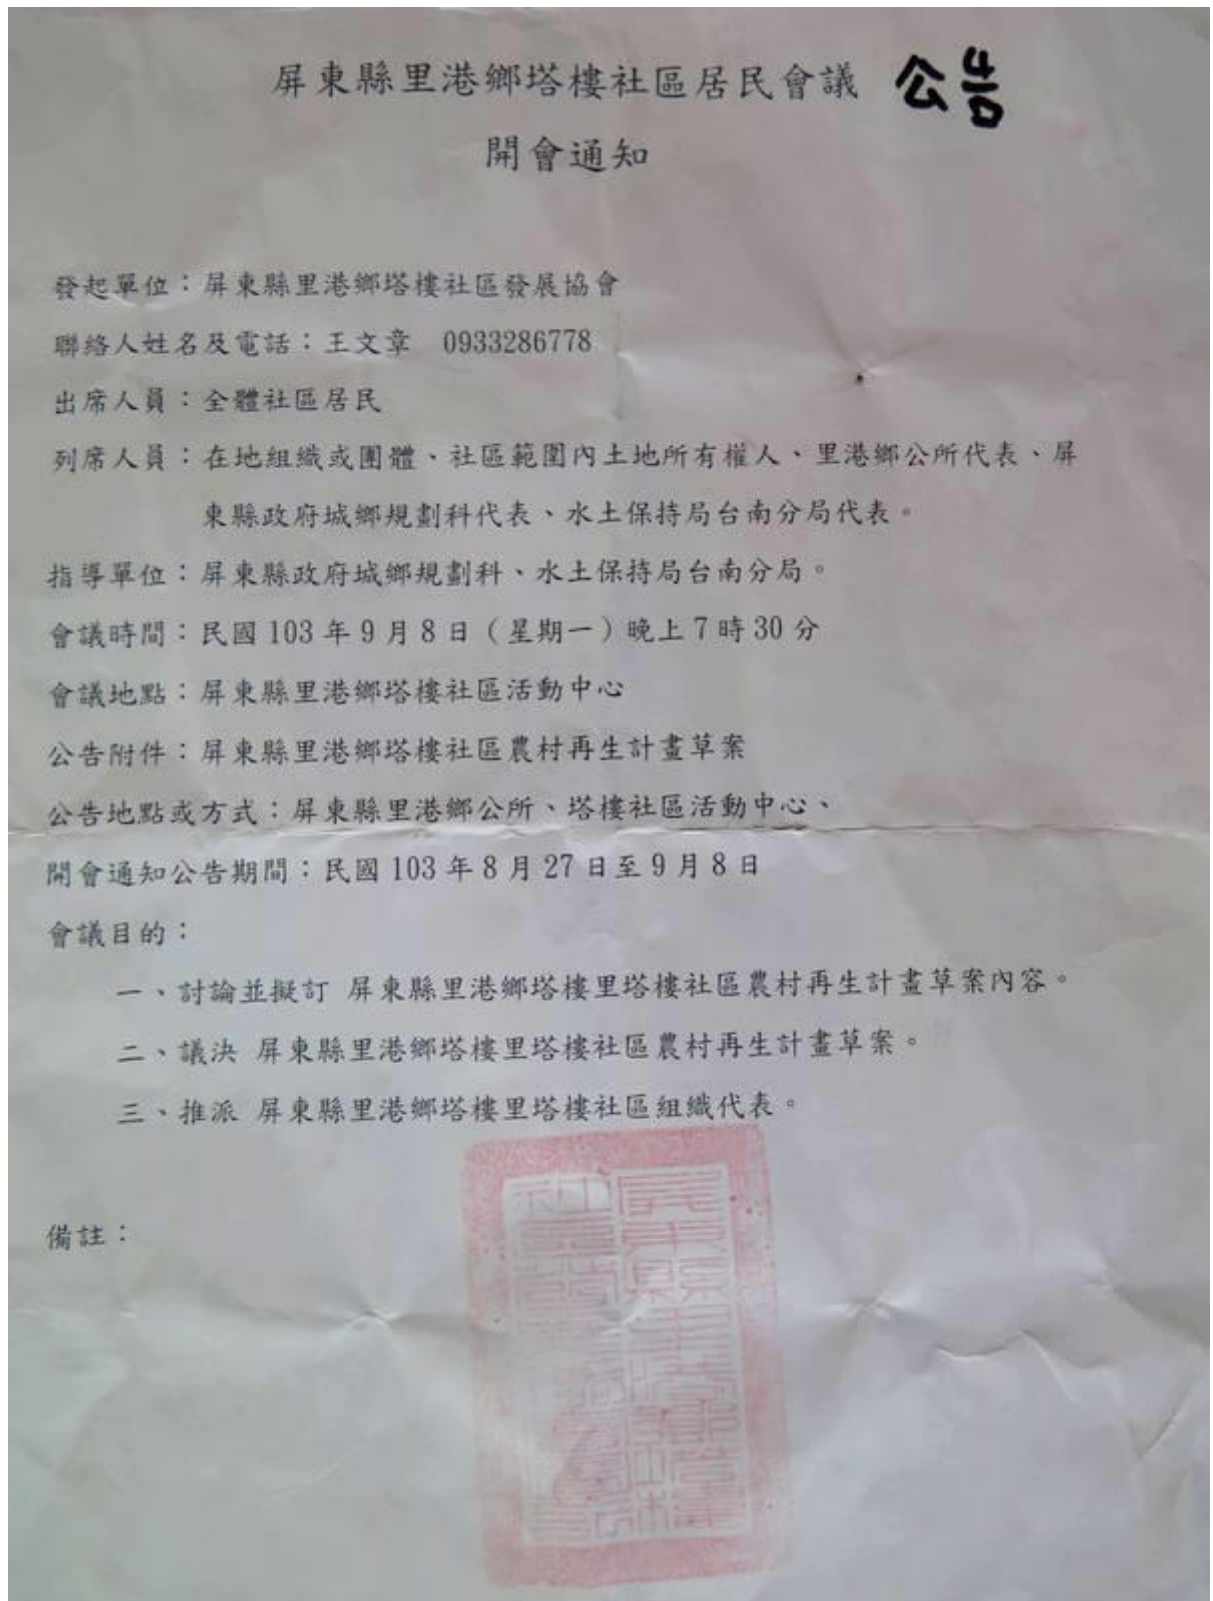 屏東縣里港鄉塔樓社區居民會議 公告
開會通知
發起單位：屏東縣里港鄉塔樓社區發展協會
聯絡人姓名及電話：王文章 0933286778
出席人員：全體社區居民
列席人員：在地組織或團體、社區範圍內土地所有權人、里港鄉公所代表、屏
東縣政府城鄉規劃科代表、水土保持局台南分局代表。
指導單位：屏東縣政府城鄉規劃科、水土保持局台南分局。
會議時間：民國 103 年 9 月 8 日（星期一）晚上 7 時 30 分
會議地點：屏東縣里港鄉塔樓社區活動中心
公告附件：屏東縣里港鄉塔樓社區農村再生計畫草案
公告地點或方式：屏東縣里港鄉公所、塔樓社區活動中心、
開會通知公告期間：民國 103 年 8 月 27 日至 9 月 8 日
會議目的：
一、討論並擬訂 屏東縣里港鄉塔樓里塔樓社區農村再生計畫草案內容。
二、議決 屏東縣里港鄉塔樓里塔樓社區農村再生計畫草案。
三、推派 屏東縣里港鄉塔樓里塔樓社區組織代表。
備註：